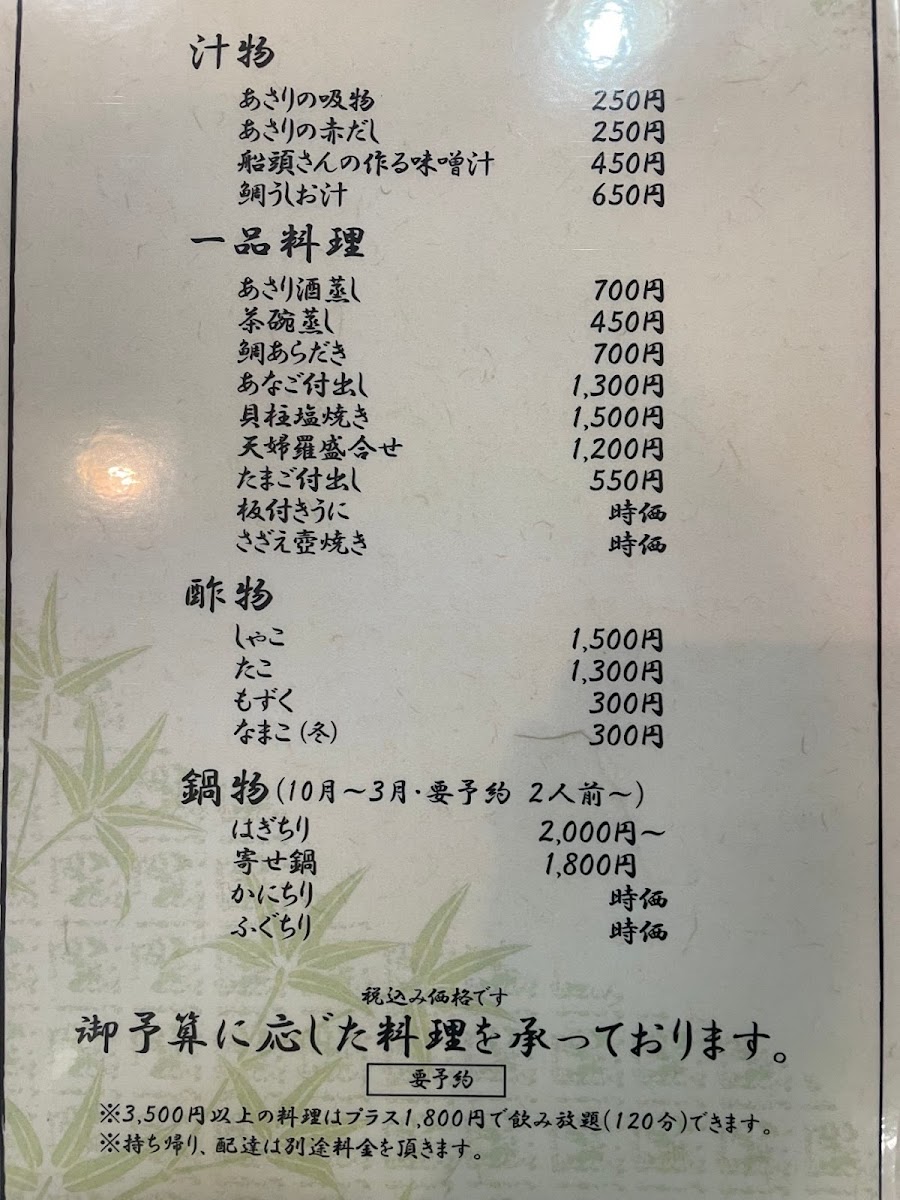 汁物
あさりの吸物 250円
あさりの赤だし 250円
船頭さんの作る味噌汁 450円
鯛うしお汁 650円
一品料理
あさり酒蒸し 700円
茶碗蒸し 450円
鯛あらだき 700円
あなご付出し 1,300円
貝柱塩焼き 1,500円
天婦羅盛合せ 1,200円
たまご付出し 550円
板付きうに 時価
さざえ壺焼き 時価
酢物
しゃこ 1,500円
たこ 1,300円
もずく 300円
なまこ(冬) 300円
鍋物(10月～3月・要予約 2人前～)
はぎちり 2,000円～
寄せ鍋 1,800円
かにちり 時価
ふぐちり 時価
税込み価格です
御予算に応じた料理を承っております。
要予約
※3,500円以上の料理はプラス1,800円で飲み放題(120分)できます。
※持ち帰り、配達は別途料金を頂きます。